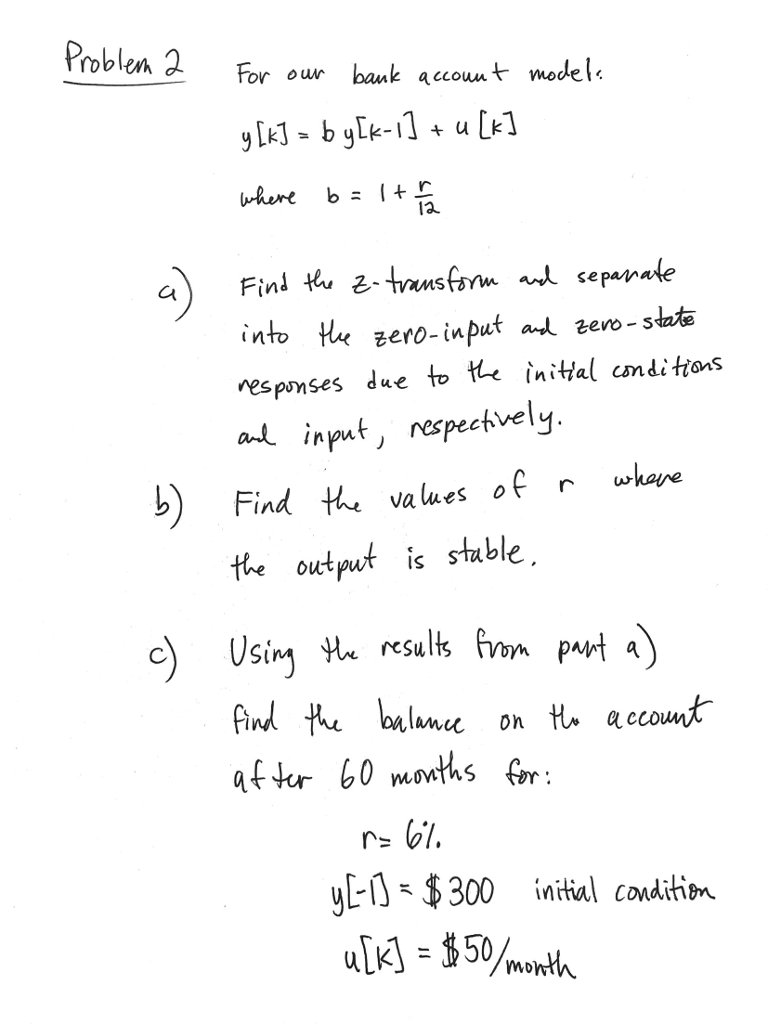 Problem 2
For our bank account model:
y[k] = b y[k-1] + u[k]
where b = 1 + r/12
a) Find the z-transform and separate
into the zero-input and zero-state
responses due to the initial conditions
and input, respectively.
b) Find the values of r where
the output is stable.
c) Using the results from part a)
find the balance on the account
after 60 months for:
r= 6%
y[-1] = $300 initial condition
u[k] = $50/month